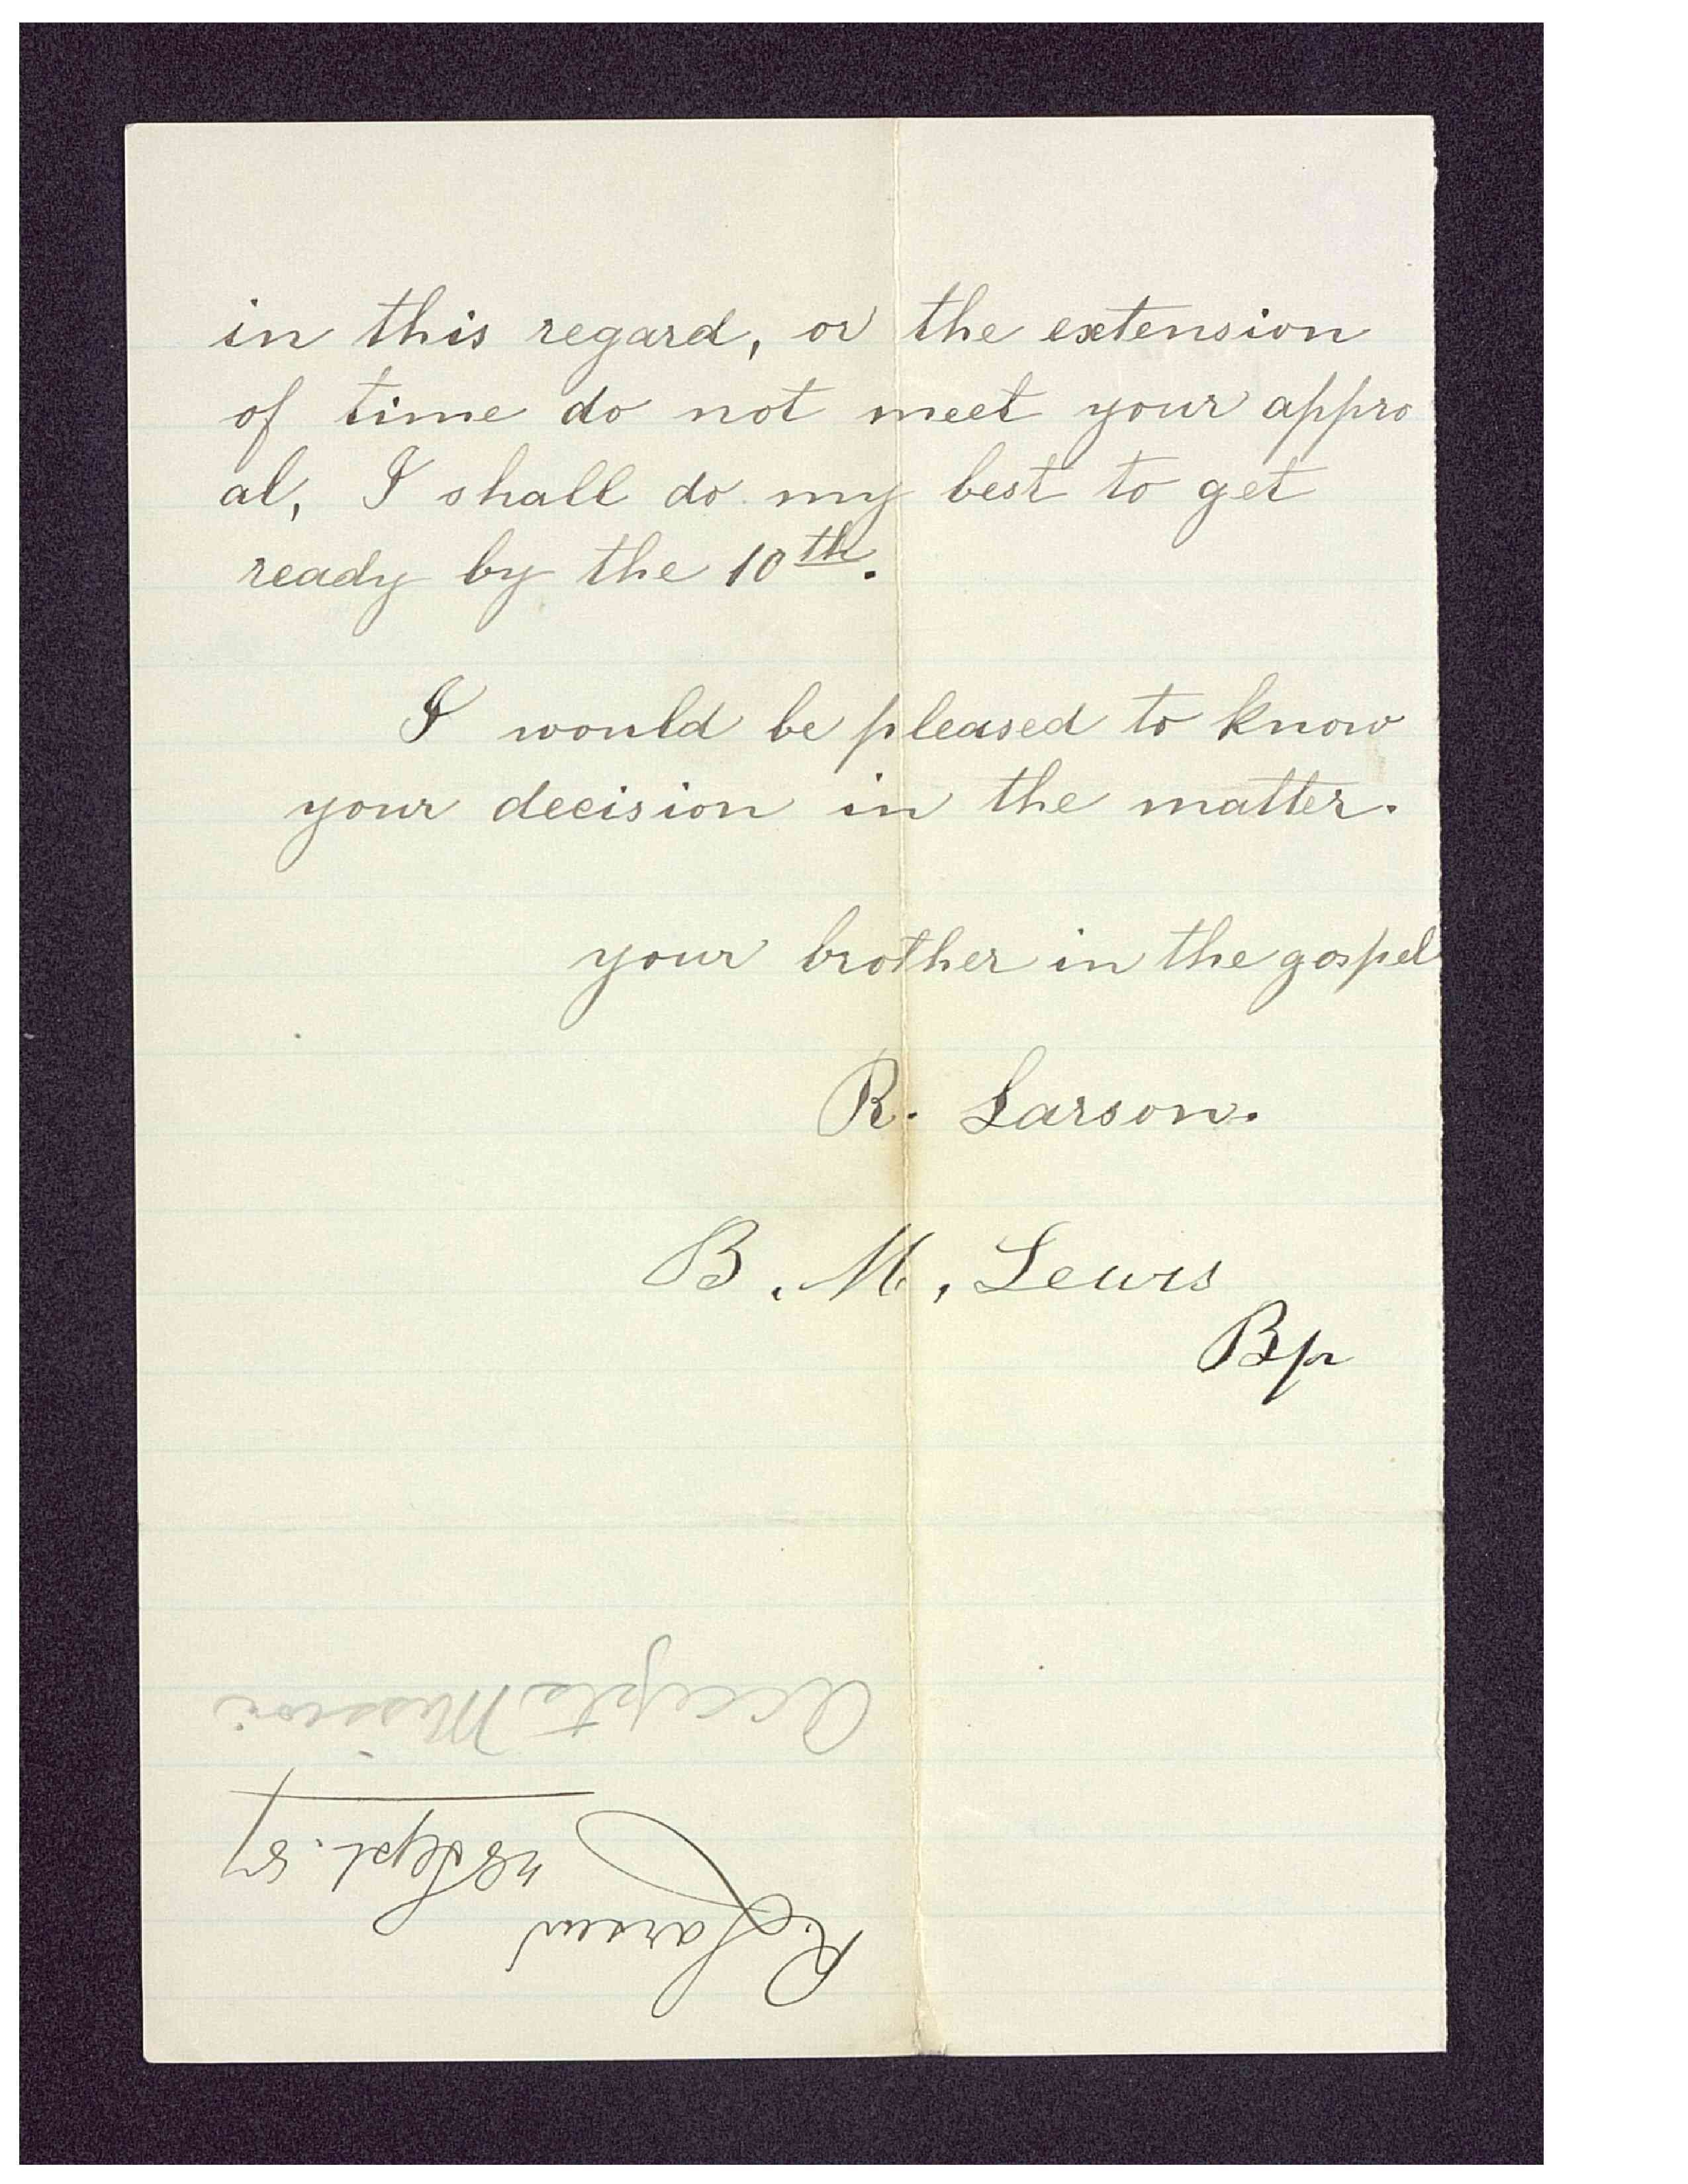 in this regard, or the extension
of time do not meet your appro
al, I shall do my best to get
ready by the 10th.
I would be pleased to know
your decision in the matter.
your brother in the gospel
R. Larson.
B. M. Lewis
Bp
R. Larson
28 Sept. 87
Accepts Mission